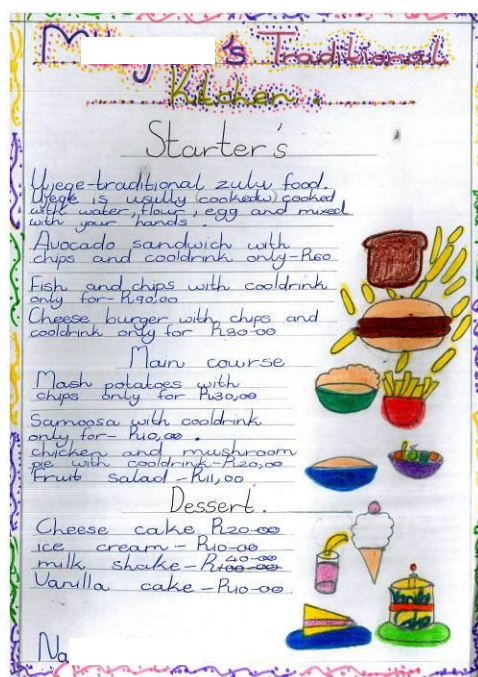 's Traditional
Kitchen.
Starter's
Ujege-traditional zulu food.
Ujege is usully (cookedw) cooked
with water, flour, egg and mixed
with your hands.
Avocado sandwich with
chips and cooldrink only-R60
Fish and chips with cooldrink
only for-R90,00
Cheese burger with chips and
cooldrink only for R80-00
Main course
Mash potatoes with
chips only for R30,00
Samoosa with cooldrink
only for- R10,00.
chicken and mushroom
pie with cooldrink-R20,00
Fruit salad-R11,00
Dessert.
Cheese cake R20-00
ice cream-R10-00
milk shake-R40-00
Vanilla cake-R10-00
Vanilla
cake
Na